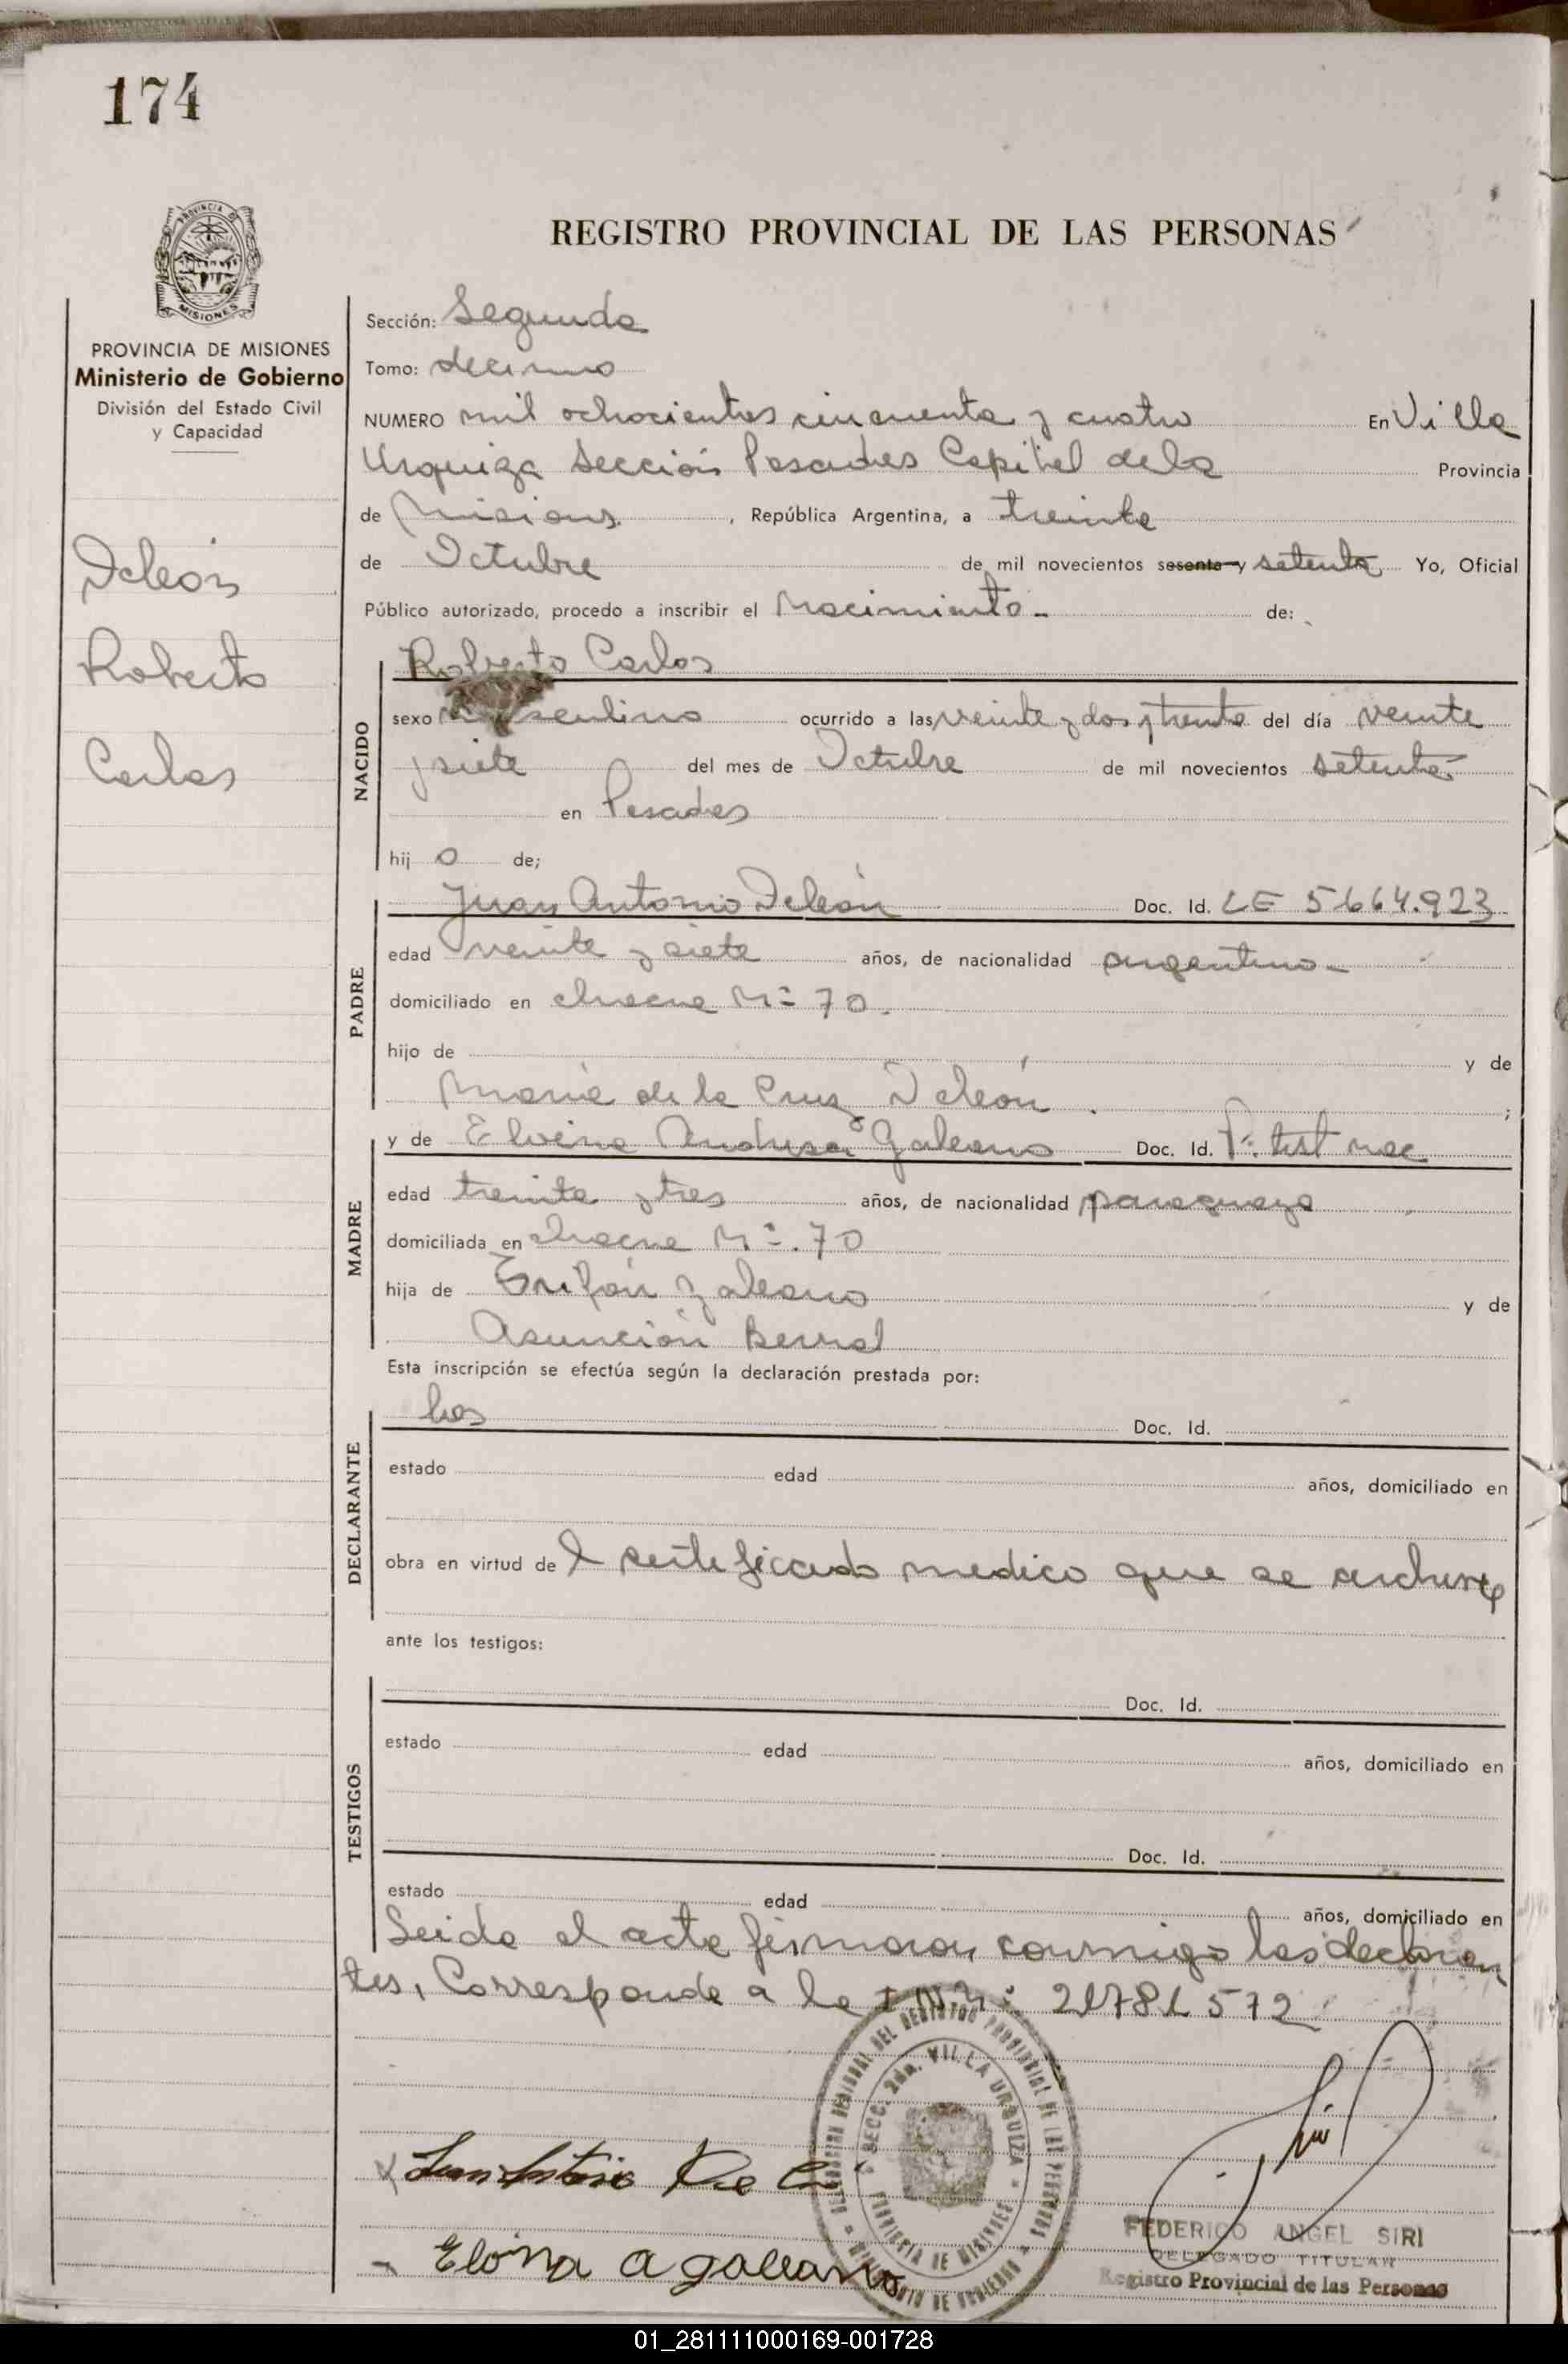 174
PROVINCIA DE
MISIONES
PROVINCIA DE MISIONES
Ministerio de Gobierno
División del Estado Civil
y Capacidad
Deleón
Roberto
Carlos
REGISTRO PROVINCIAL DE LAS PERSONAS
Sección: Segunda
Tomo: decimo
NUMERO mil ochocientos cincuenta y cuatro En Villa
Urquiza Sección Posadas Capital de la Provincia
de Misiones, República Argentina, a treinta
de Octubre de mil novecientos sesenta y setenta Yo, Oficial
Público autorizado, procedo a inscribir el Nacimiento - de:
Roberto Carlos
NACIDO
sexo Masculino ocurrido a las veinte y dos y treinta del día veinte
y siete del mes de Octubre de mil novecientos setenta
en Posadas
hij o de;
PADRE
Juan Antonio Deleón Doc. Id. LE 5664.923
edad veinte y siete años, de nacionalidad argentino -
domiciliado en chacra Nº 70.
hijo de y de
María de la Cruz Deleón ;
MADRE
y de Elvina Andresa Galeano Doc. Id. P. test nac
edad treinta y tres años, de nacionalidad paraguaya
domiciliada en chacra Nº. 70
hija de Trifón Galeano y de
Asunción Bernal
Esta inscripción se efectúa según la declaración prestada por:
DECLARANTE
los Doc. Id.
estado edad años, domiciliado en
obra en virtud de certificado medico que se archiva
ante los testigos:
TESTIGOS
Doc. Id.
estado edad años, domiciliado en
Doc. Id.
estado edad años, domiciliado en
Leida el acta firmaron conmigo los declaran
tes, Corresponde a la 21781572
DEL REGISTRO PROVINCIAL DE LAS PERSONAS
SECC. 2da. VILLA URQUIZA
PROVINCIA DE MISIONES
MINISTERIO DE GOBIERNO
Juan Antonio De
Elvina A galeano
FEDERICO ANGEL SIRI
DELEGADO TITULAR
Registro Provincial de las Personas
01_281111000169-001728